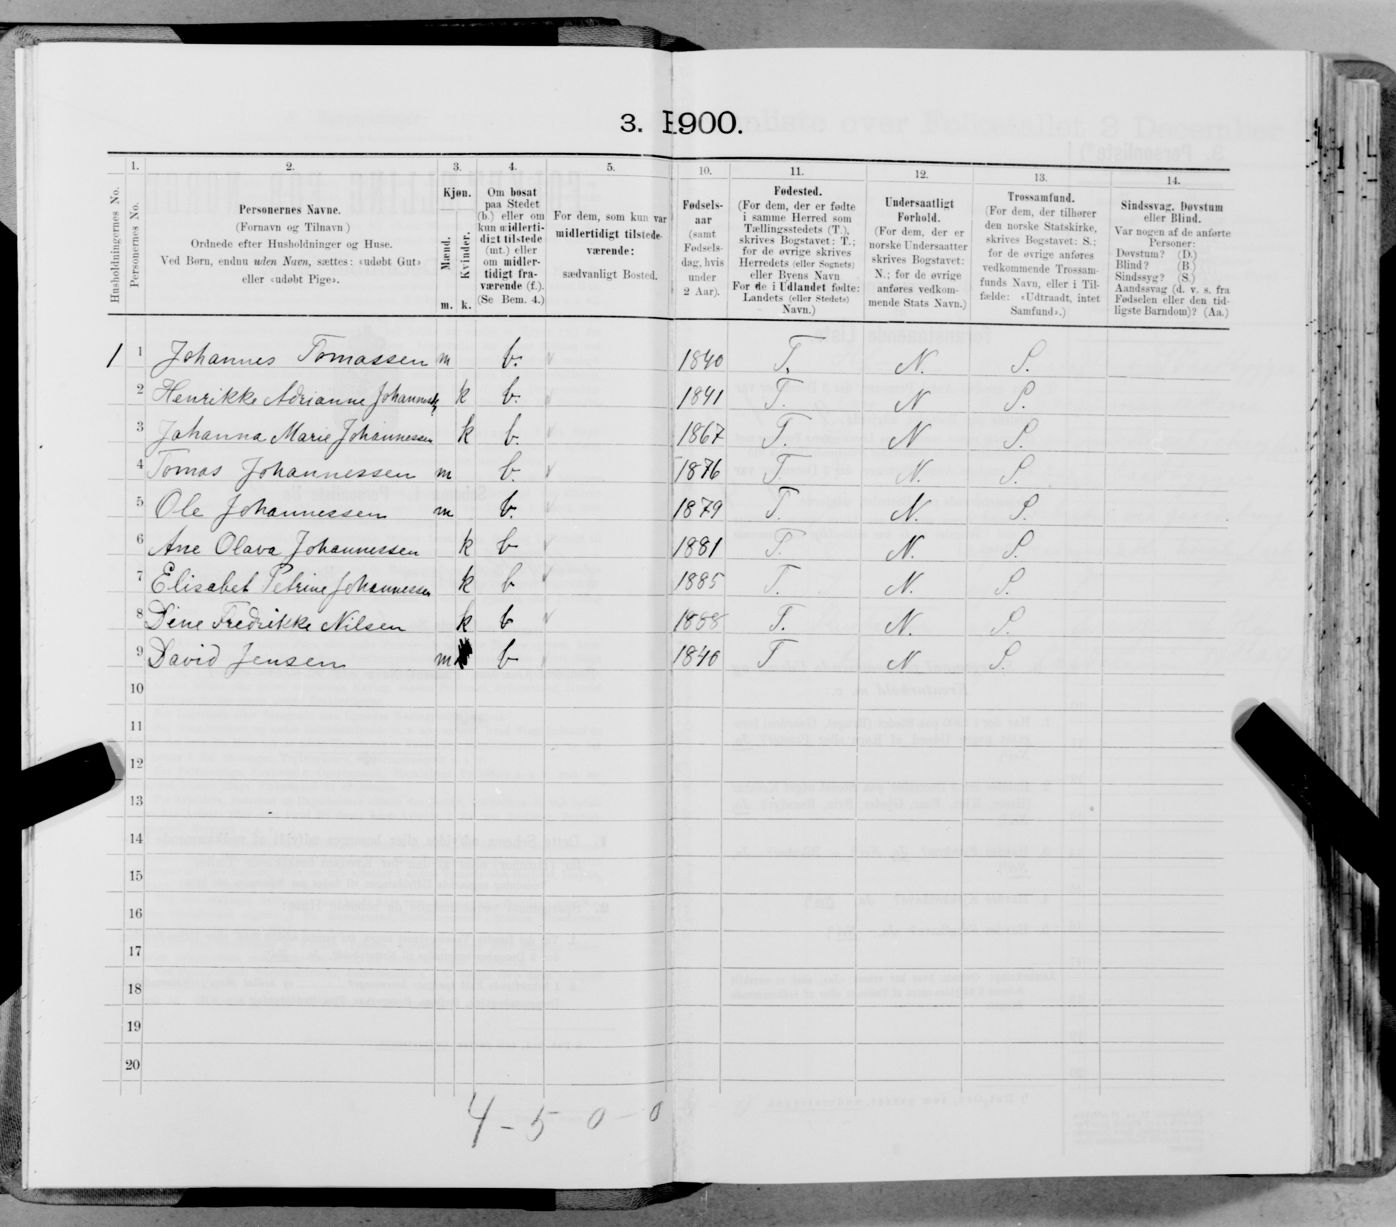 3. 1900.
1.
2.
3.
4.
5.
10.
11.
12.
13.
14.
Husholdningernes No.
Personernes No.
Personernes Navne.
(Fornavn og Tilnavn)
Ordnede efter Husholdninger og Huse.
Ved Børn, endnu uden Navn, sættes: «udøbt Gut»
eller «udøbt Pige».
Kjøn.
Mænd.
Kvinder.
m. k.
Om bosat
paa Stedet
(b.) eller om
kun midlerti-
digt tilstede
(mt.) eller
om midler-
tidigt fra-
værende (f.).
(Se Bem. 4.)
For dem, som kun var
midlertidigt tilstede-
værende:
sædvanligt Bosted.
Fødsels-
aar
(samt
Fødsels-
dag, hvis
under
2 Aar).
Fødested.
(For dem, der er fødte
i samme Herred som
Tællingsstedets (T.),
skrives Bogstavet: T.;
for de øvrige skrives
Herredets (eller Sognets)
eller Byens Navn
For de i Udlandet fødte:
Landets (eller Stedets)
Navn.)
Undersaatligt
Forhold.
(For dem, der er
norske Undersaatter
skrives Bogstavet:
N.; for de øvrige
anføres vedkom-
mende Stats Navn.)
Trossamfund.
(For dem, der tilhører
den norske Statskirke,
skrives Bogstavet: S.;
for de øvrige anføres
vedkommende Trossam-
funds Navn, eller i Til-
fælde: «Udtraadt, intet
Samfund».)
Sindssvag, Døvstum
eller Blind.
Var nogen af de anførte
Personer:
Døvstum? (D.)
Blind? (B.)
Sindssyg? (S.)
Aandssvag (d. v. s. fra
Fødselen eller den tid-
ligste Barndom)? (Aa.)
1 1 Johannes Tomassen m b. 1840 T. N. S.
2 Henrikke Adrianne k b. 1841 T. N S.
3 Johanna Marie Johannessen k b. 1867 T. N S.
4 Tomas Johannessen m b. 1876 T. N. S.
5 Ole Johannessen m b. 1879 T. N. S.
6 Ane Olava Johannessen k b 1881 T. N. S.
7 Elisabet Petrine Johannessen k b 1885 T. N. S.
8 Dine Fredrikke Nilsen k b 1888 T. N. S.
9 David Jensen m b 1840 T N. S.
10
11
12
13
14
15
16
17
18
19
20
4-5 0-0